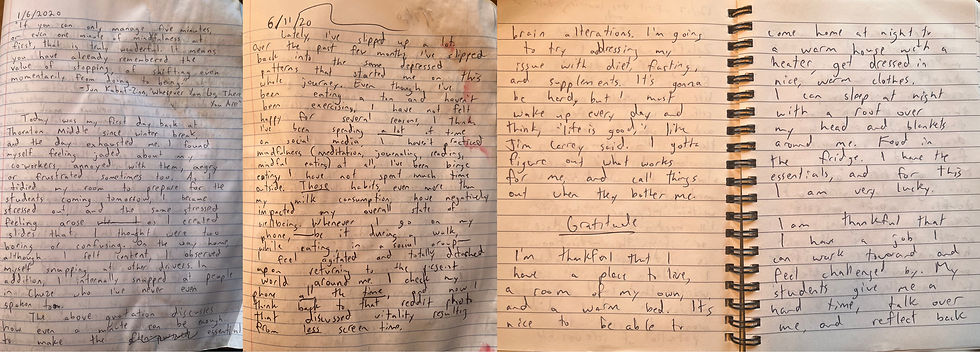 1/6/2020
"If you can only manage five minutes,
or even one minute of mindfulness at
first, that is truly wonderful. It means
you have already remembered the
value of stopping, of shifting even
momentarily from doing to being."
-Jon Kabat-Zinn, Wherever You Go, There
You Are"
Today was my first day back at
Thornton Middle since winter break
and the day exhausted me. I found
myself feeling jaded about my
coworkers, annoyed with them, angry
or frustrated sometimes too. As I
tidied my room to prepare for the
students coming tomorrow, I became
stressed out and the same stressed
feeling arose when I created
slides that I thought were too
boring or confusing. On the way home,
although I felt content, I observed
myself snapping at other drivers. In
addition, I internally snapped at people
in Chuze who I've never even
spoken to.
The above quotation discusses
how even a minute can be enough
to make the essential
6/11/20
Lately, I've slipped up a lot.
Over the past few months I've slipped
back into the same depressed
patterns that started me on this
whole journey. Even though I've
been eating a ton and haven't
been exercising, I have not felt
happy for several reasons, I think.
I've been spending a lot of time
on social media. I haven't practiced
mindfulness (meditation, journaling, reading,
mindful eating) at all, I've been binge
eating, I have not spent much time
outside. These habits, even more than
my milk consumption, have negatively
impacted my overall state of
wellbeing. Whenever I go on my
phone, —be it during a walk,
while eating, in a social group—
I feel agitated and totally detached
upon returning to the present
world around me. I check my
phone all the time, and now I
think back to that reddit photo
that discussed vitality resulting
from less screen time,
brain alterations. I'm going
to try addressing my
issue with diet, fasting,
and supplements. It's gonna
be hard, but I must
wake up every day and
think, "life is good," like
Jim Carrey said. I gotta
figure out what works
for me, and call things
out when they bother me.
Gratitude
I'm thankful that I
have a place to live,
a room of my own,
and a warm bed. It's
nice to be able to
come home at night to
a warm house with a
heater, get dressed in
nice, warm clothes.
I can sleep at night
with a roof over
my head and blankets
around me. Food in
the fridge. I have the
essentials, and for this
I am very lucky.
I am thankful that
I have a job I
can work toward and
feel challenged by. My
students give me a
hard time, talk over
me, and reflect back